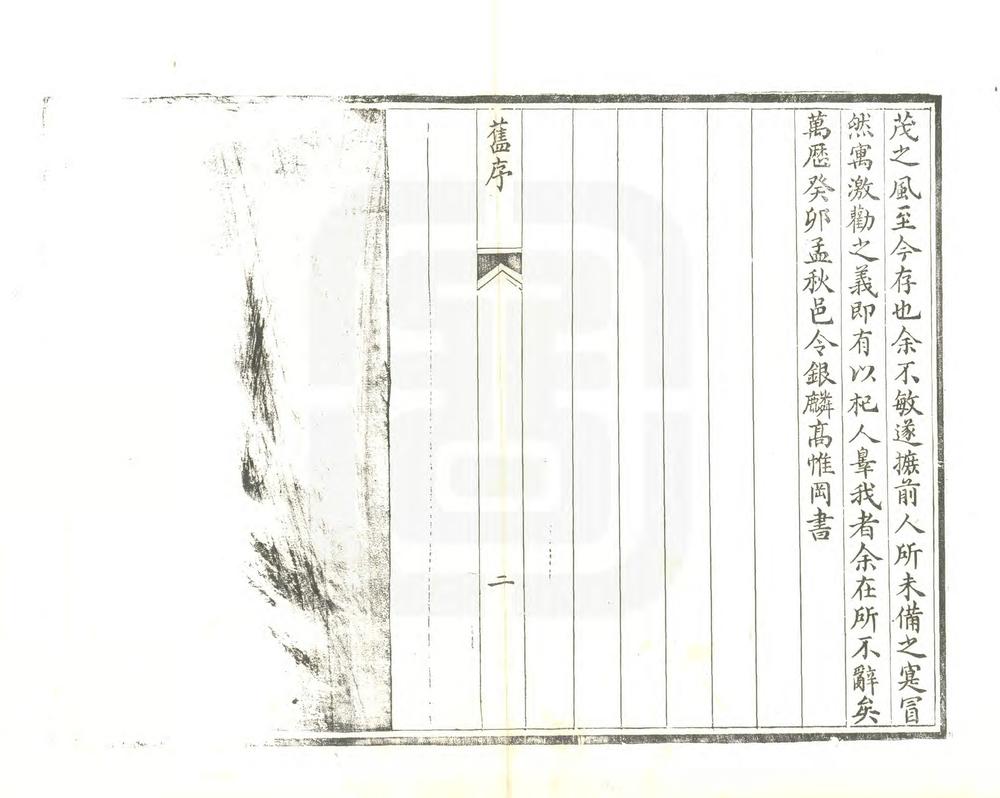 茂之風至今存也余不敏遂摭前人所未備之寔冒
然寓激勸之義即有以杞人辠我者余在所不辭矣
萬歷癸卯孟秋邑令銀麟高惟岡書
舊序
二